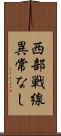 西部戦線
異常なし